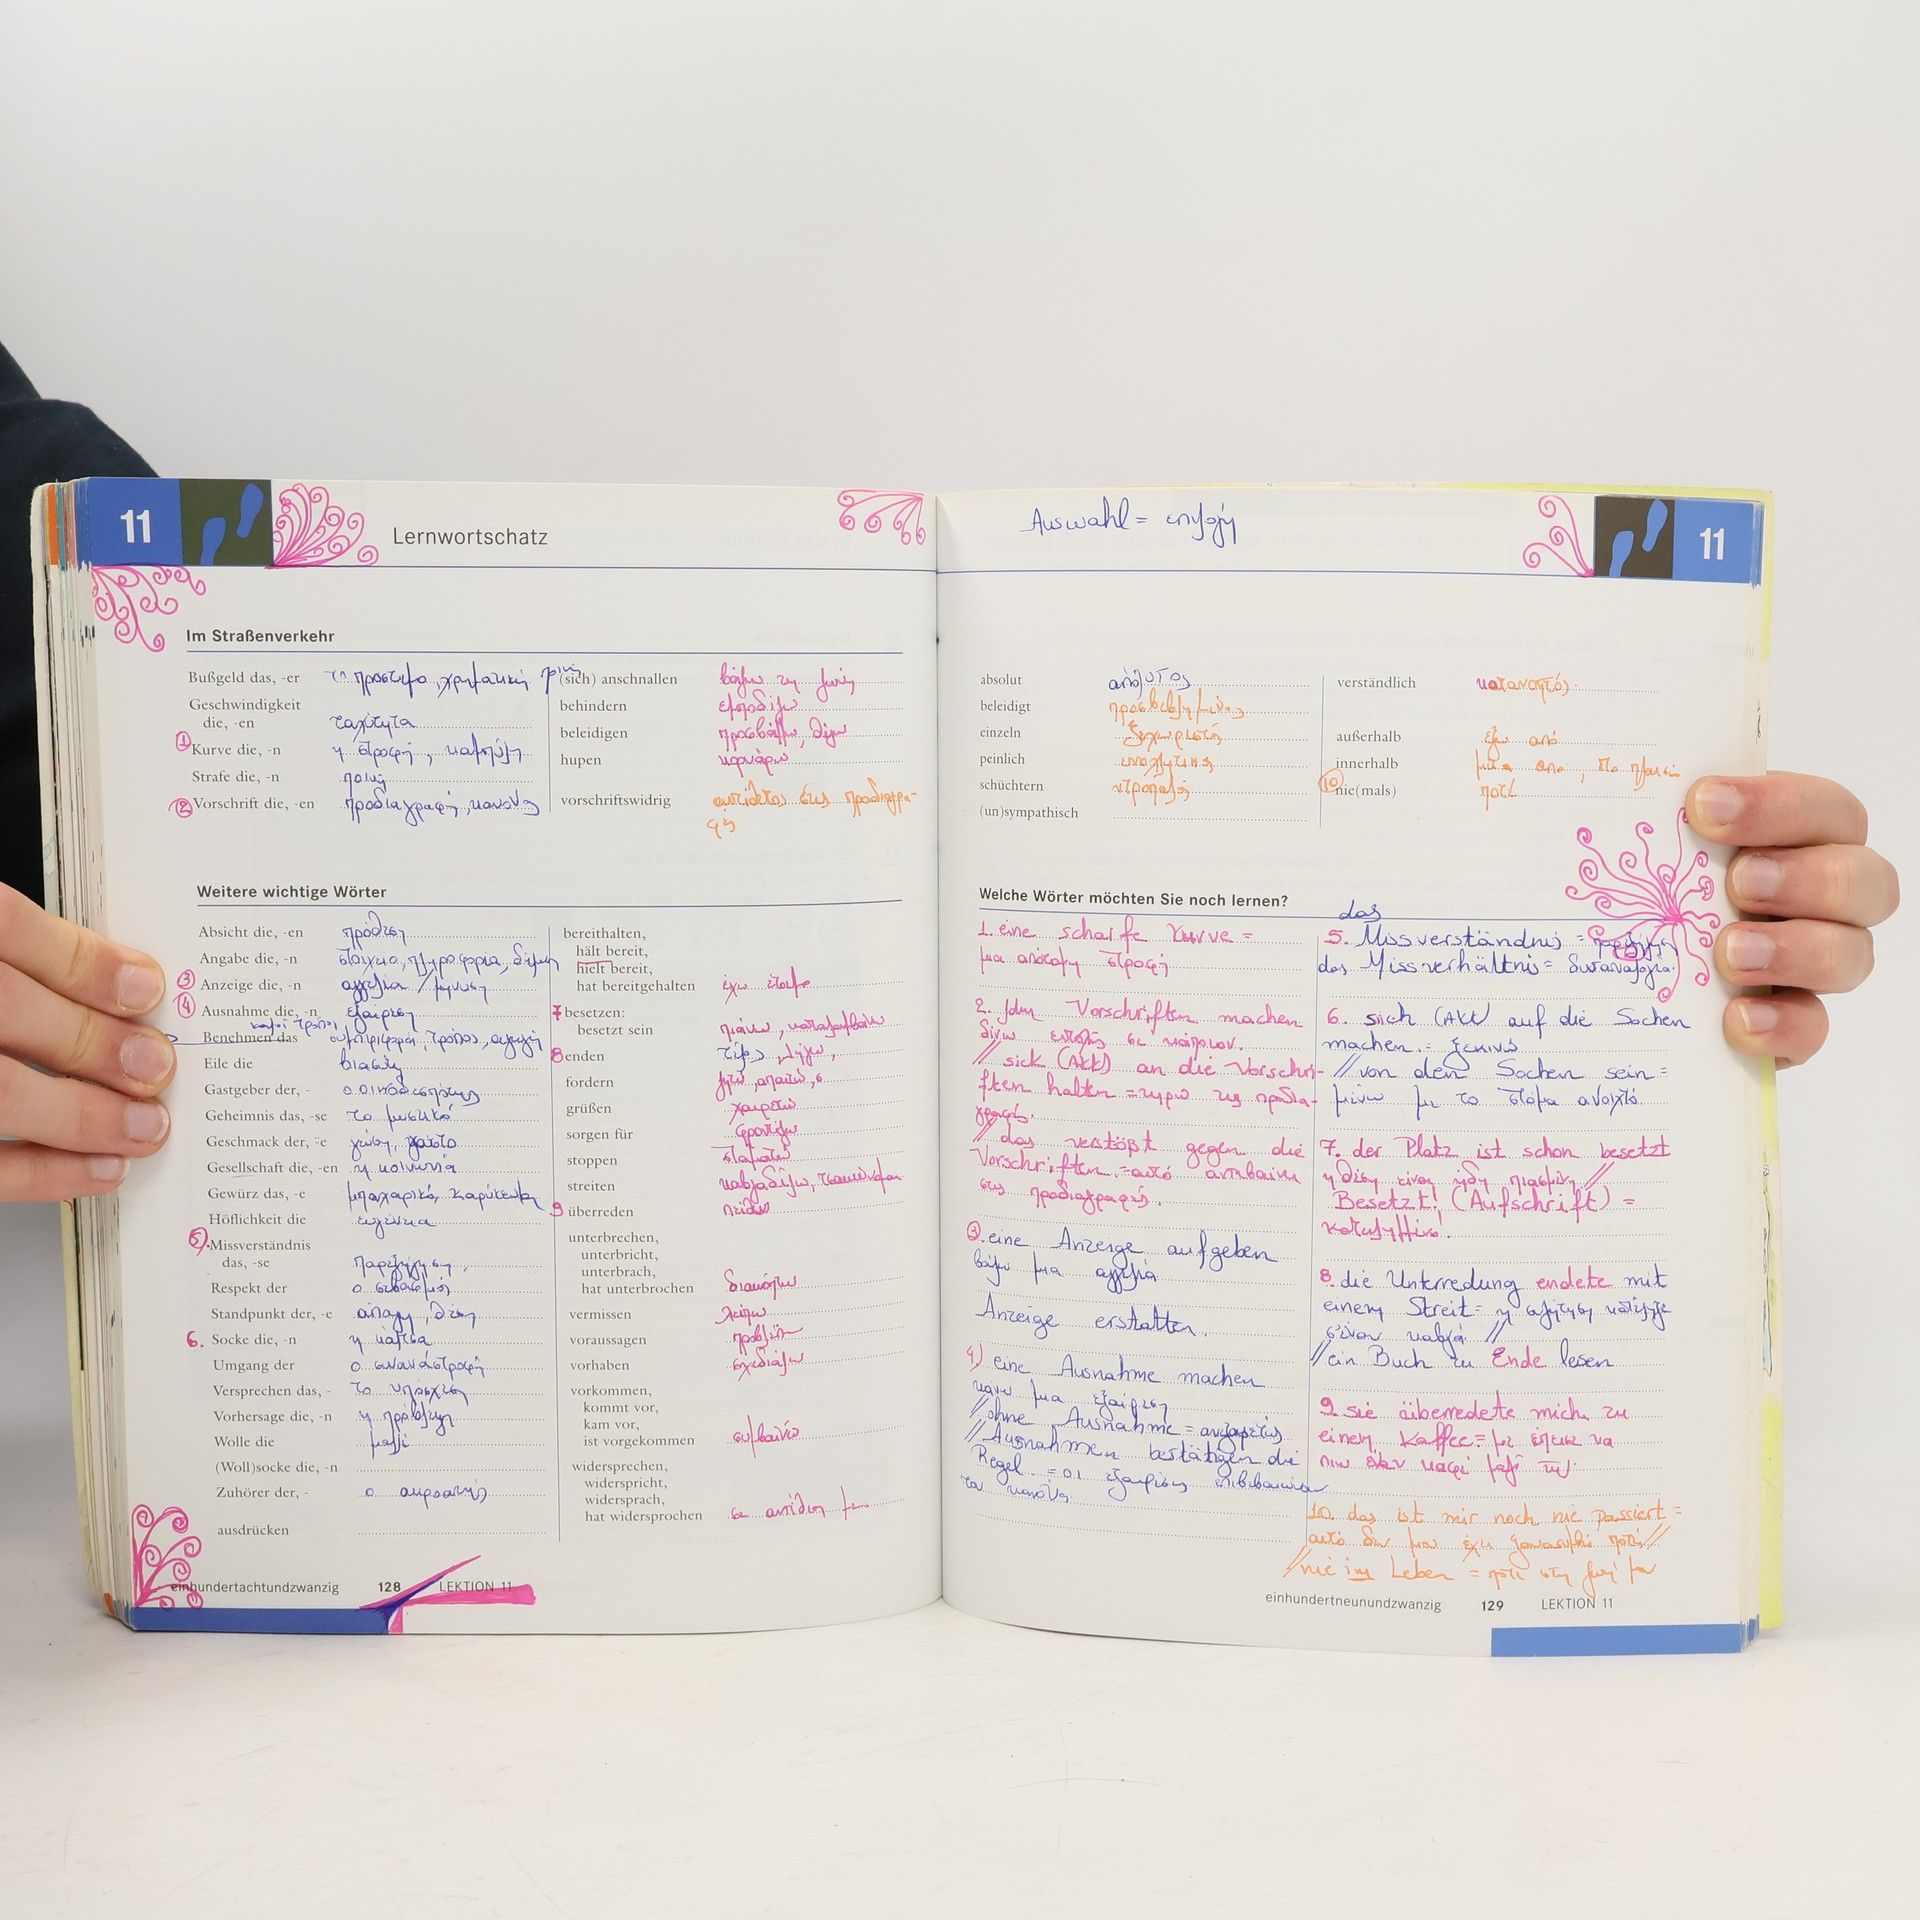 11
Lernwortschatz
Im Straßenverkehr
Bußgeld das, -er το πρόστιμο, χρηματική ποινή
Geschwindigkeit
die, -en ταχύτητα
① Kurve die, -n η στροφή, καμπύλη
Strafe die, -n ποινή
② Vorschrift die, -en προδιαγραφή, κανόνας
(sich) anschnallen βάζω τη ζώνη
behindern εμποδίζω
beleidigen προσβάλλω, θίγω
hupen κορνάρω
vorschriftswidrig αντίθετος στις προδιαγρα-
φές
Weitere wichtige Wörter
Absicht die, -en πρόθεση
Angabe die, -en στοιχείο, πληροφορία, δήλωση
③ Anzeige die, -n αγγελία / μήνυση
④ Ausnahme die, -n εξαίρεση
καλοί τρόποι
Benehmen das συμπεριφορά, τρόπος, αγωγή
Eile die βιασύνη
Gastgeber der, - ο οικοδεσπότης
Geheimnis das, -se το μυστικό
Geschmack der, ¨-e γεύση, γούστο
Gesellschaft die, -en η κοινωνία
Gewürz das, -e μπαχαρικό, καρύκευμα
Höflichkeit die ευγένεια
⑤. Missverständnis
das, -se παρεξήγηση
Respekt der ο σεβασμός
Standpunkt der, -e άποψη, θέση
6. Socke die, -n η κάλτσα
Umgang der ο συναναστροφή
Versprechen das, - το υπόσχεση
Vorhersage die, -n η πρόβλεψη
Wolle die μαλλί
(Woll)socke die, -n
Zuhörer der, - ο ακροατής
ausdrücken
bereithalten,
hält bereit,
hielt bereit,
hat bereitgehalten έχω έτοιμο
7 besetzen:
besetzt sein πιάνω, καταλαμβάνω
8 enden τέλος, λήγω,
fordern ζητώ, απαιτώ
grüßen χαιρετώ
sorgen für φροντίζω
stoppen σταματώ
streiten καβγαδίζω, τσακώνομαι
9 überreden πείθω
unterbrechen,
unterbricht,
unterbrach,
hat unterbrochen διακόπτω
vermissen λείπω
voraussagen προβλέπω
vorhaben σχεδιάζω
vorkommen,
kommt vor,
kam vor,
ist vorgekommen συμβαίνω
widersprechen,
widerspricht,
widersprach,
hat widersprochen σε αντίθεση με
einhundertachtundzwanzig 128 LEKTION 11
Auswahl = επιλογή
11
absolut απόλυτος
beleidigt προσβεβλημένος
einzeln ξεχωριστά
peinlich
schüchtern ντροπαλός
(un)sympathisch
verständlich κατανοητός
außerhalb έξω από
innerhalb μέσα απο, το πλαισιο
⑩ nie(mals) ποτέ
Welche Wörter möchten Sie noch lernen?
1. eine scharfe Kurve =
μια απότομη στροφή
2. jdm Vorschriften machen
δίνω εντολές σε κάποιον.
// sich (Akk) an die Vorschri-
ften halten = τηρώ τις προδια-
γραφές.
// das verstößt gegen die
Vorschriften = αυτό αντιβαίνει
στις προδιαγραφές.
③. eine Anzeige aufgeben
βάζω μια αγγελία
Anzeige erstatten.
4) eine Ausnahme machen
κάνω μια εξαίρεση
// ohne Ausnahme = ανεξαιρέτως
// Ausnahmen bestätigen die
Regel = οι εξαιρέσεις επιβεβαιώνουν
το κανόνα
das
5. Missverständnis = παρεξήγηση
das Missverhältnis = δυσαναλογία
6. sich (Akk) auf die Socken
machen = ξεκινώ
// von den Socken sein =
μένω με το στόμα ανοιχτό.
7. der Platz ist schon besetzt
η θέση είναι ήδη πιασμένη //
Besetzt! (Aufschrift) =
κατειλημμένο!
8. die Unterredung endete mit
einem Streit = η συζήτηση κατέληξε
σ'έναν καβγά. //
// ein Buch zu Ende lesen
9. sie überredete mich zu
einem Kaffee = με έπεισε να
πιω έναν καφέ μαζί της.
10. das ist mir noch nie passiert =
αυτό δεν μου έχει ξανασυμβεί ποτέ //
// nie im Leben = ποτέ στη ζωή μου
einhundertneunundzwanzig 129 LEKTION 11